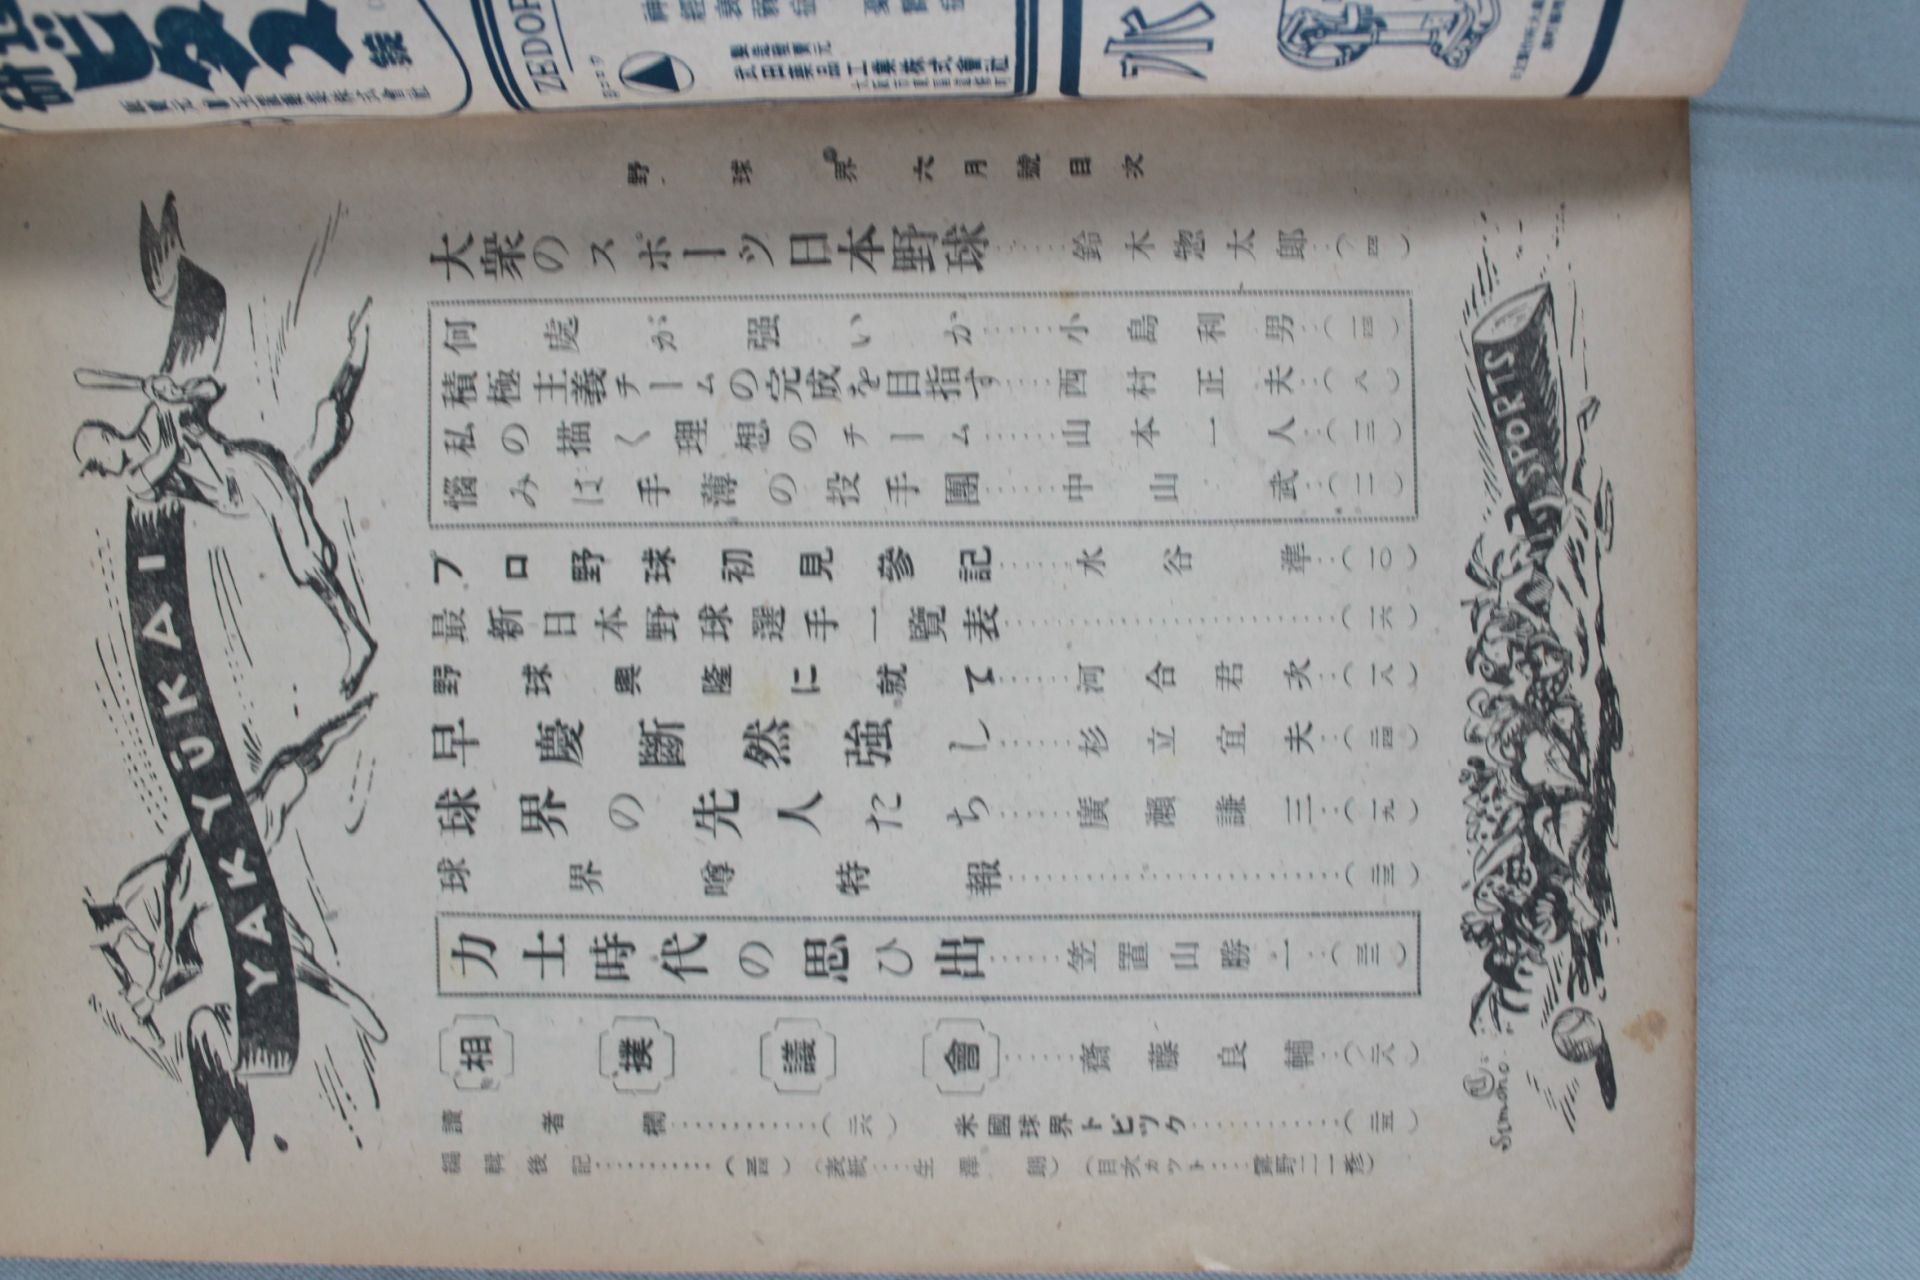 野球界六月號目次
大衆のスポーツ日本野球……鈴木惣太郎…(四)
何處が强いか……小島利男…(一四)
積極主義チームの完成を目指す……西村正夫…(八)
私の描く理想のチーム……山本一人…(一三)
惱みは手薄の投手團……中山武…(一二)
プロ野球初見參記……水谷準…(一〇)
最新日本野球選手一覽表……(一六)
野球興隆に就て……河合君次…(一八)
早慶斷然强し……杉立宜夫…(二四)
球界の先人たち……廣瀨謙三…(一九)
球界噂特報……(二三)
力士時代の思ひ出……笠置山勝一…(三三)
相撲議會……齋藤良輔…(二八)
讀者欄……(二六)
米國球界トピック……(二五)
編輯後記……
(表紙…生澤朗)
(目次カット…
YAKYŪKAI
SPORTS
ZEDOR
武田藥品工業株式會社
水